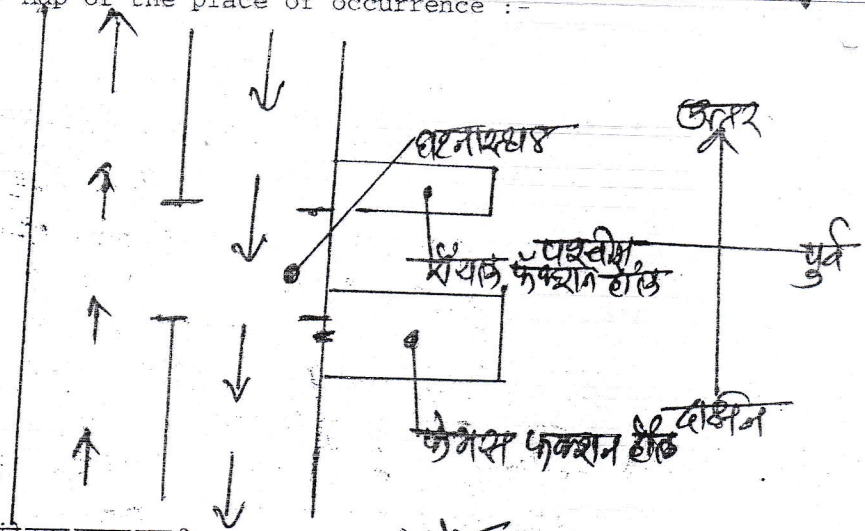 Map of the place of occurrence :-
उत्तर
घटनास्थळ
पश्चीम
पुर्व
रॉयल फंक्शन हॉल
दक्षिन
फेमस फंक्शन हॉल